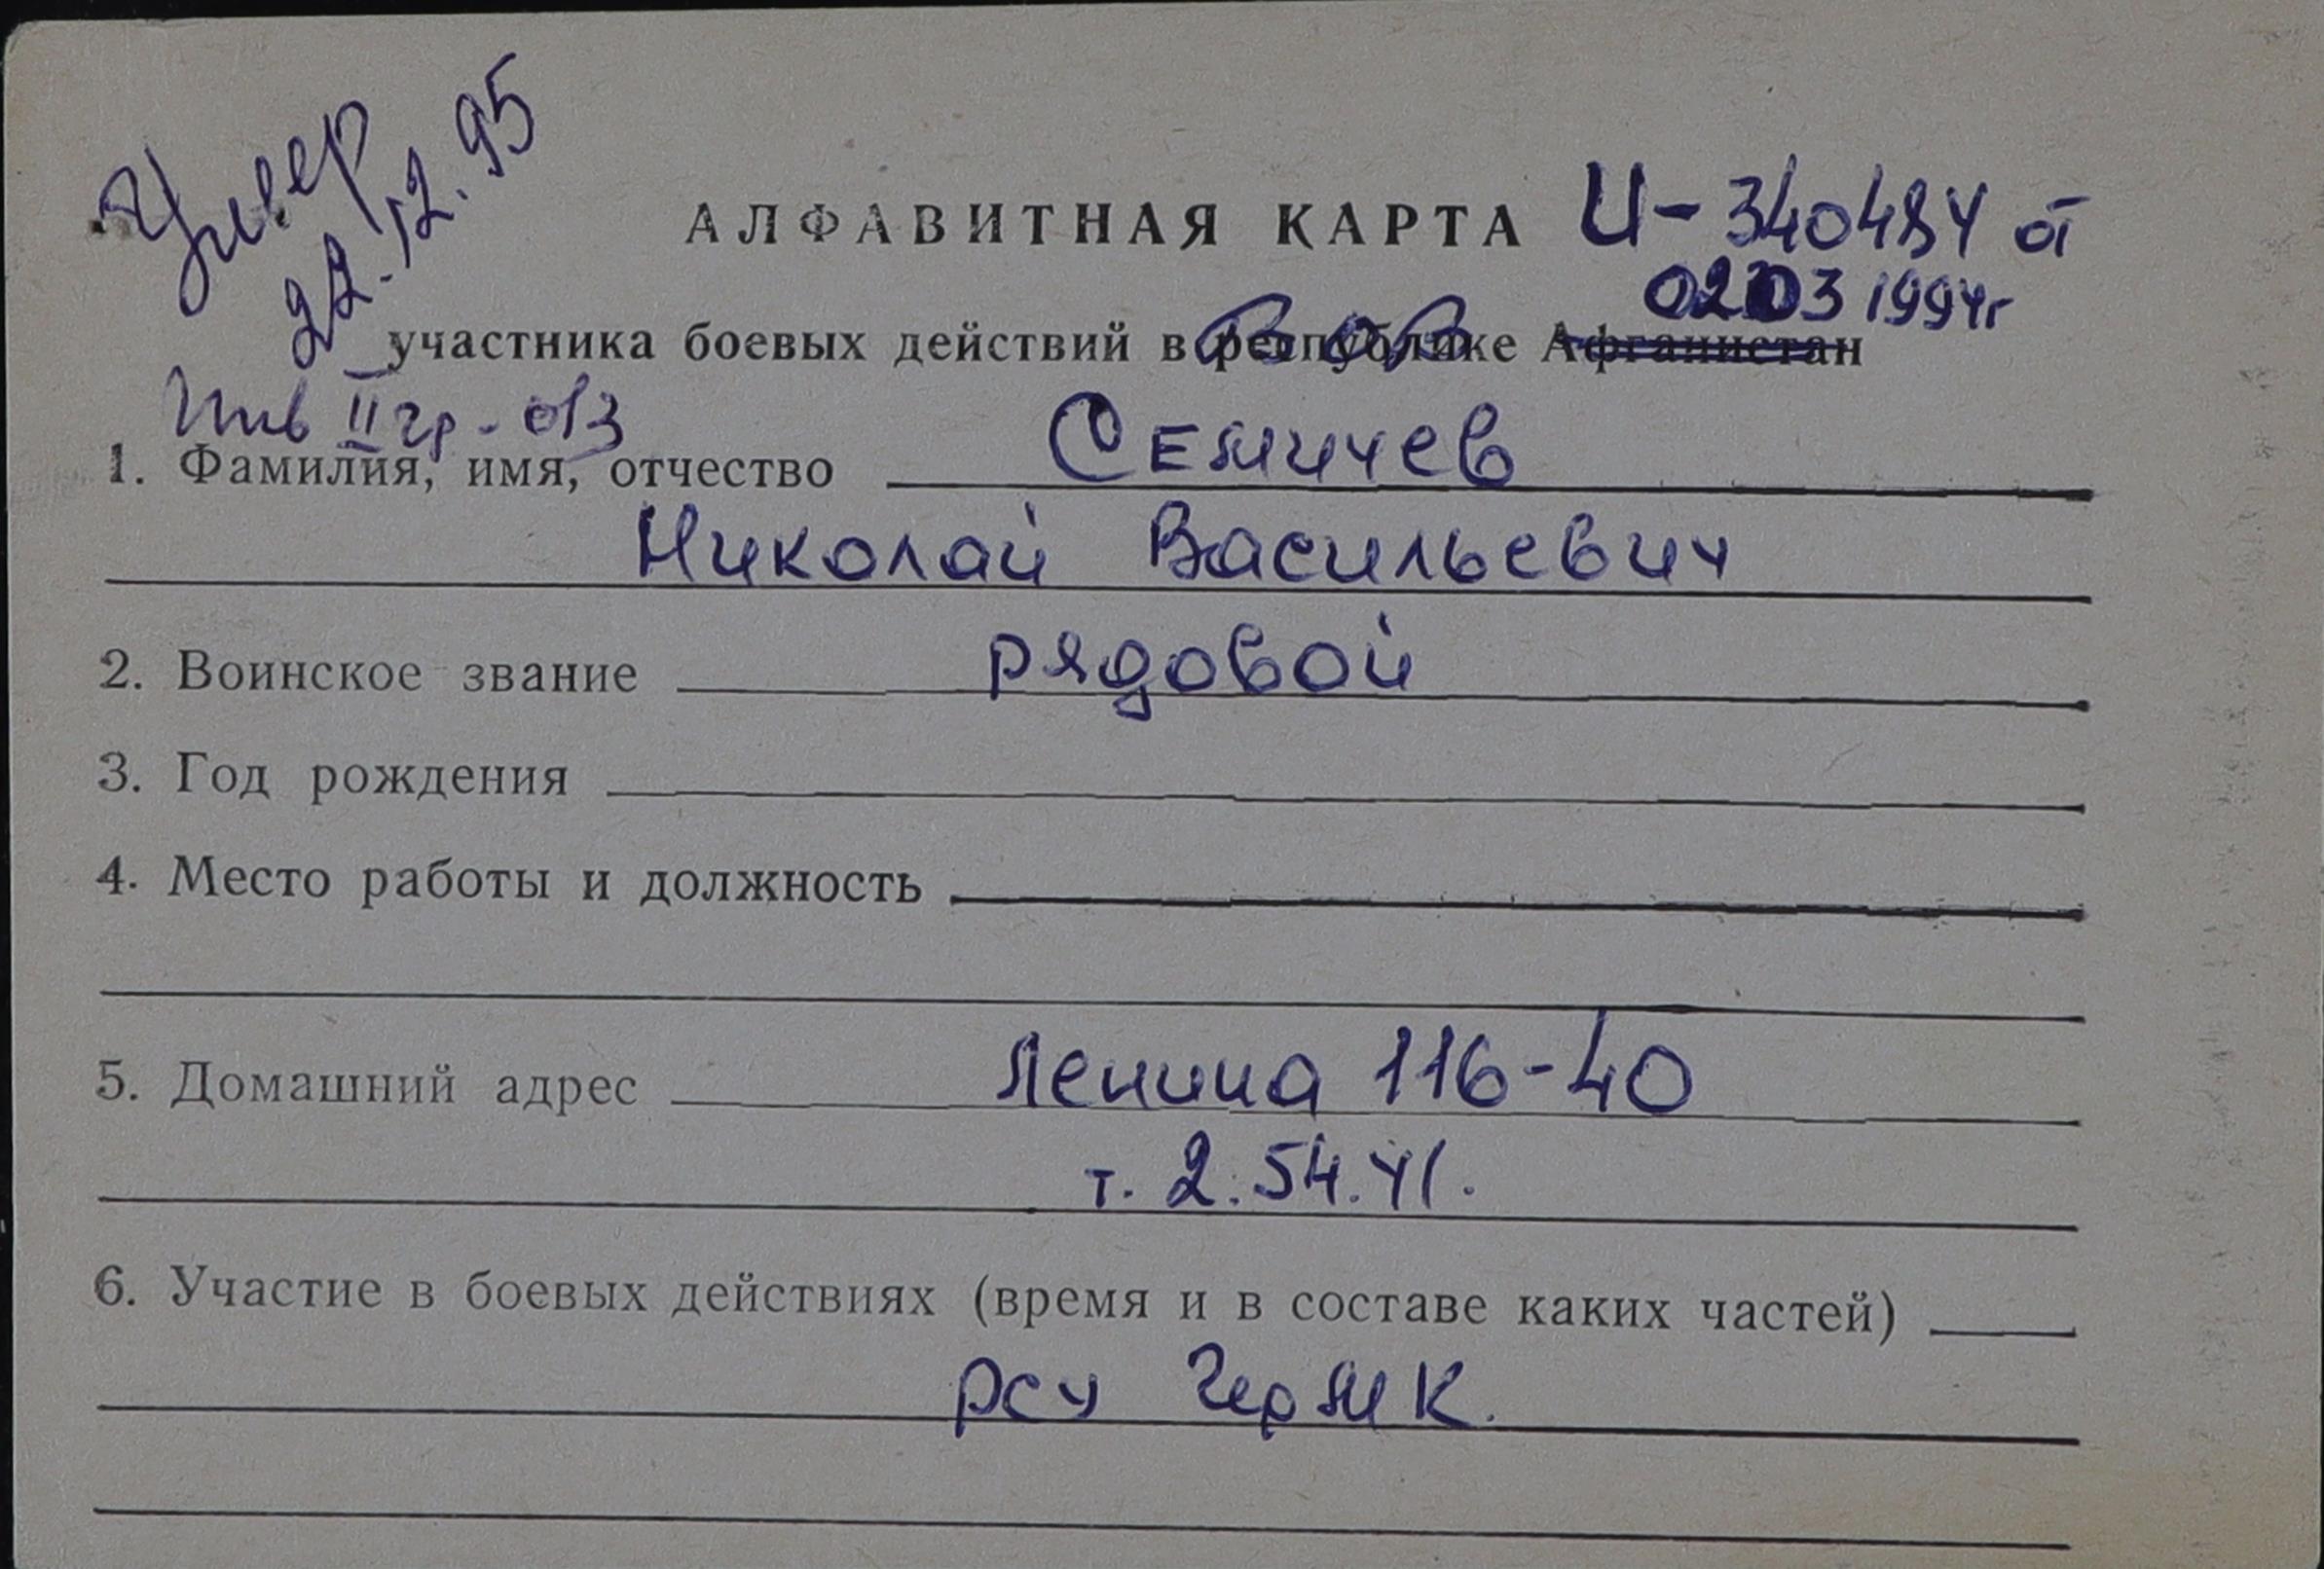 Умер
22.12.95
АЛФАВИТНАЯ КАРТА И-340484 от
02 03 1994г
участника боевых действий в республике Афганистан
ВОВ
Инв II гр - 013
1. Фамилия, имя, отчество Семичев
Николай Васильевич
2. Воинское звание рядовой
3. Год рождения
4. Место работы и должность
5. Домашний адрес Ленина 116-40
т. 2.54.41.
6. Участие в боевых действиях (время и в составе каких частей)
РСУ ЧерМК.